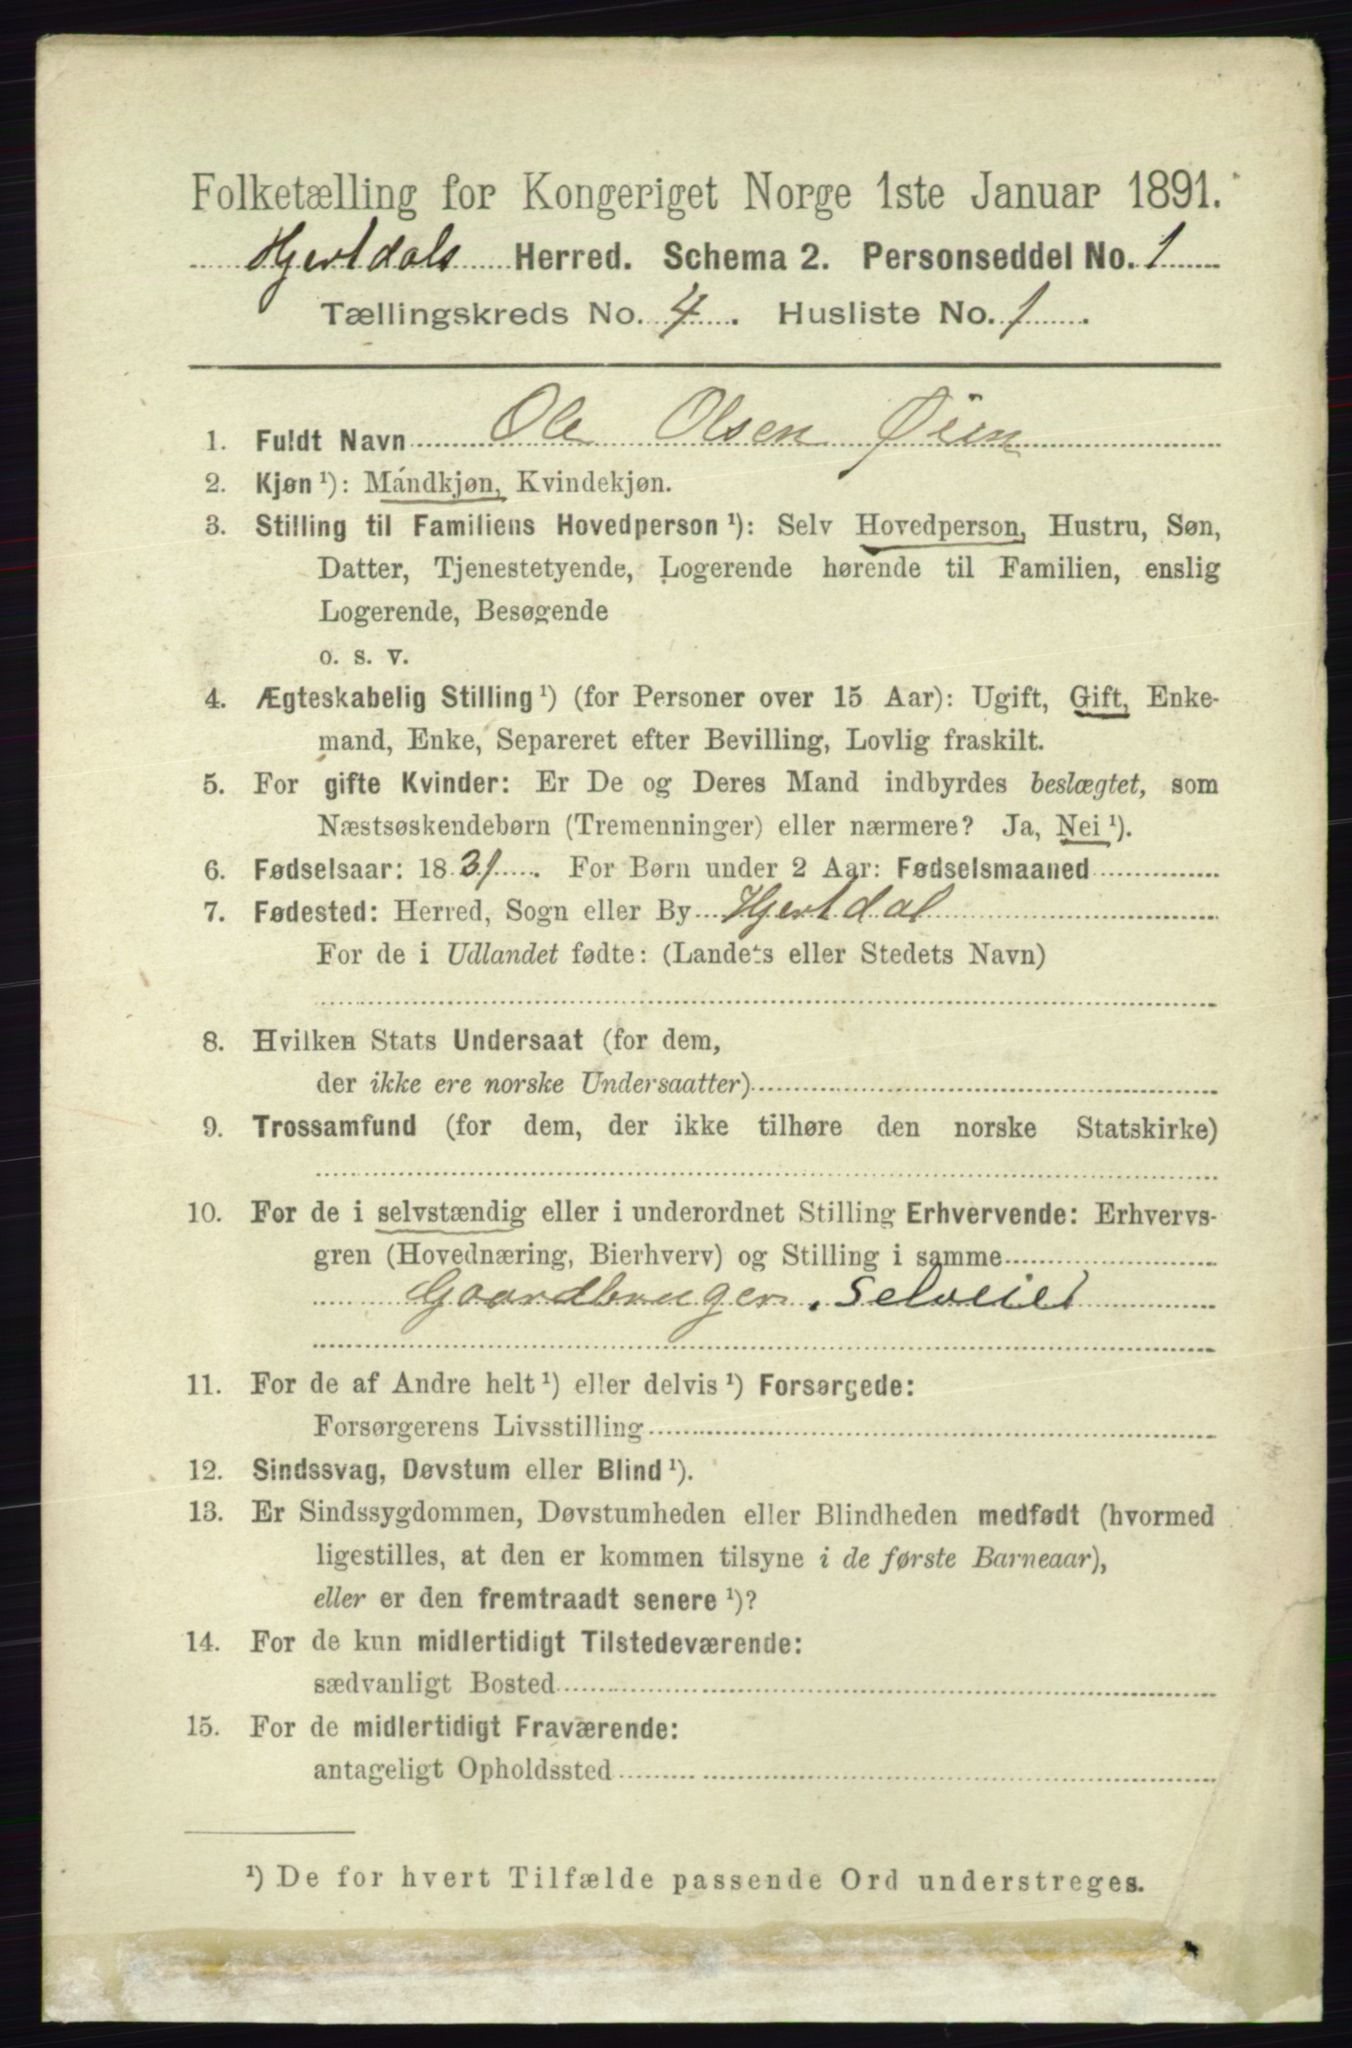 Folketælling for Kongeriget Norge 1ste Januar 1891.
Hjertdals Herred. Schema 2. Personseddel No. 1
Tællingskreds No. 4. Husliste No. 1.
1. Fuldt Navn Ole Olsen Øien
2. Kjøn ¹): Mandkjøn, Kvindekjøn.
3. Stilling til Familiens Hovedperson ¹): Selv Hovedperson, Hustru, Søn,
Datter, Tjenestetyende, Logerende hørende til Familien, enslig
Logerende, Besøgende
o. s. v.
4. Ægteskabelig Stilling ¹) (for Personer over 15 Aar): Ugift, Gift, Enke-
mand, Enke, Separeret efter Bevilling, Lovlig fraskilt.
5. For gifte Kvinder: Er De og Deres Mand indbyrdes beslægtet, som
Næstsøskendebørn (Tremenninger) eller nærmere? Ja, Nei ¹).
6. Fødselsaar: 1831. For Børn under 2 Aar: Fødselsmaaned
7. Fødested: Herred, Sogn eller By Hjertdal
For de i Udlandet fødte: (Landets eller Stedets Navn)
8. Hvilken Stats Undersaat (for dem,
der ikke ere norske Undersaatter)
9. Trossamfund (for dem, der ikke tilhøre den norske Statskirke)
10. For de i selvstændig eller i underordnet Stilling Erhvervende: Erhvervs-
gren (Hovednæring, Bierhverv) og Stilling i samme
Gaardbruger. Selveier
11. For de af Andre helt ¹) eller delvis ¹) Forsørgede:
Forsørgerens Livsstilling
12. Sindssvag, Døvstum eller Blind ¹).
13. Er Sindssygdommen, Døvstumheden eller Blindheden medfødt (hvormed
ligestilles, at den er kommen tilsyne i de første Barneaar),
eller er den fremtraadt senere ¹)?
14. For de kun midlertidigt Tilstedeværende:
sædvanligt Bosted
15. For de midlertidigt Fraværende:
antageligt Opholdssted
¹) De for hvert Tilfælde passende Ord understreges.